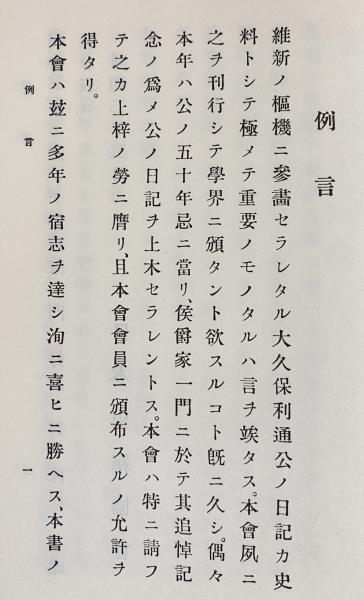 例言
維新ノ樞機ニ參畫セラレタル大久保利通公ノ日記カ史
料トシテ極メテ重要ノモノタルハ言ヲ竢タス。本會夙ニ
之ヲ刊行シテ學界ニ頒タント欲スルコト旣ニ久シ。偶々
本年ハ公ノ五十年忌ニ當リ、侯爵家一門ニ於テ其追悼記
念ノ爲メ公ノ日記ヲ上木セラレントス。本會ハ特ニ請フ
テ之カ上梓ノ勞ニ膺リ、且本會會員ニ頒布スルノ允許ヲ
得タリ。
本會ハ玆ニ多年ノ宿志ヲ達シ洵ニ喜ヒニ勝ヘス、本書ノ
例言
一